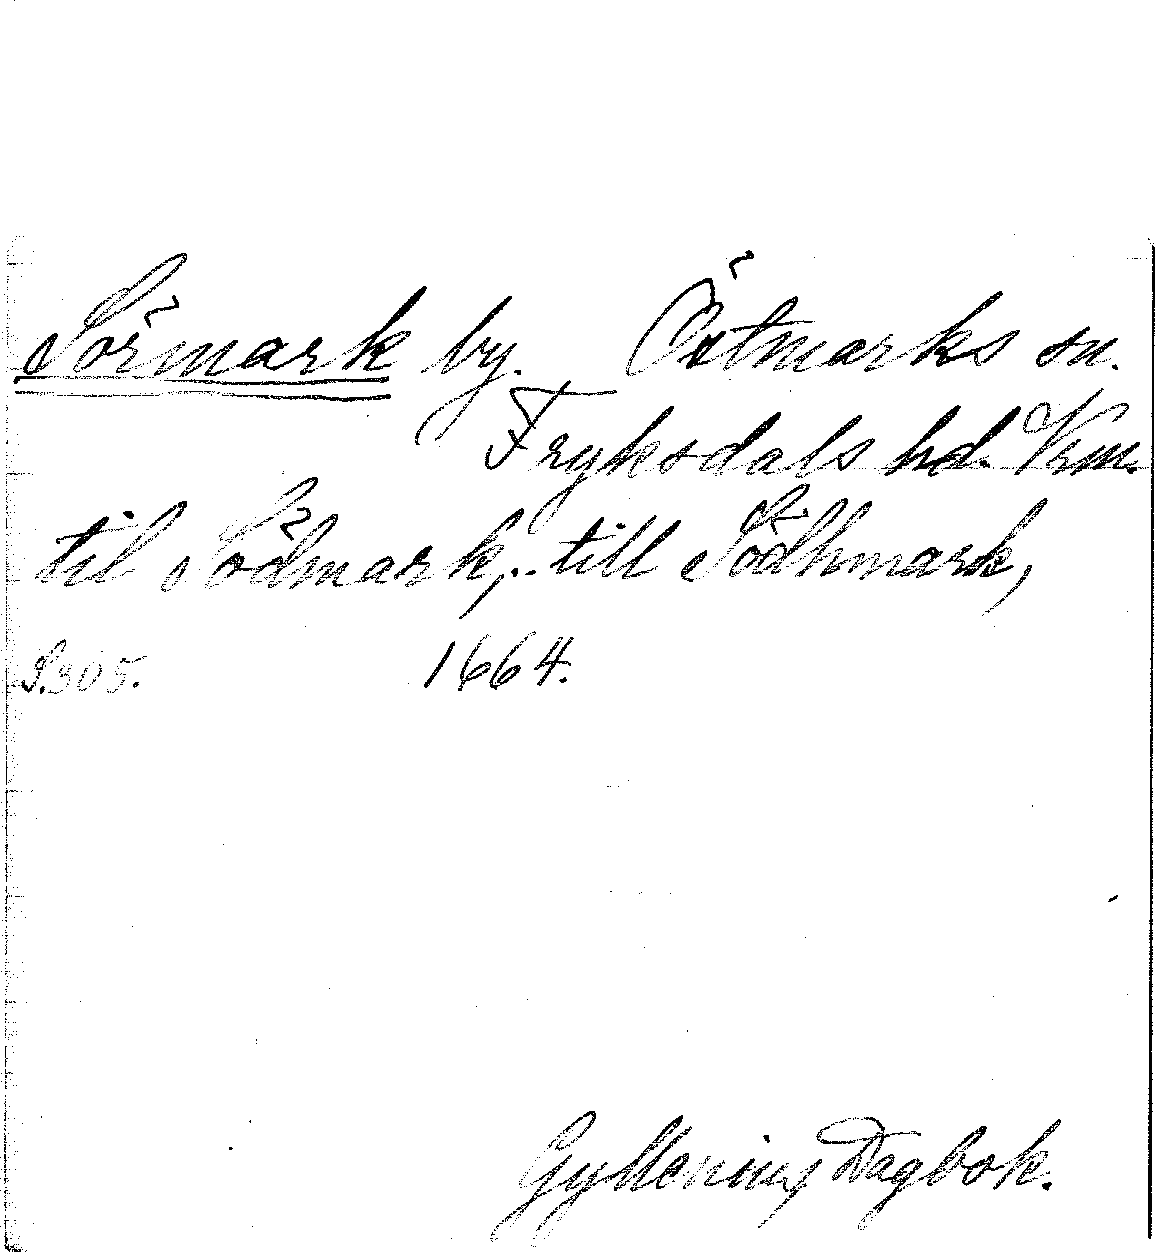 Sörmark by. Östmarks sn.
Fryksdals hd. Vrm.
til Södmark, .. till Södhmark,
S. 305. 1664.
Gyllenius Dagbok.